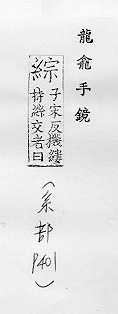 龍龕手鏡
綜
子宋反機縷
持絲交者曰
(糸部
P401)